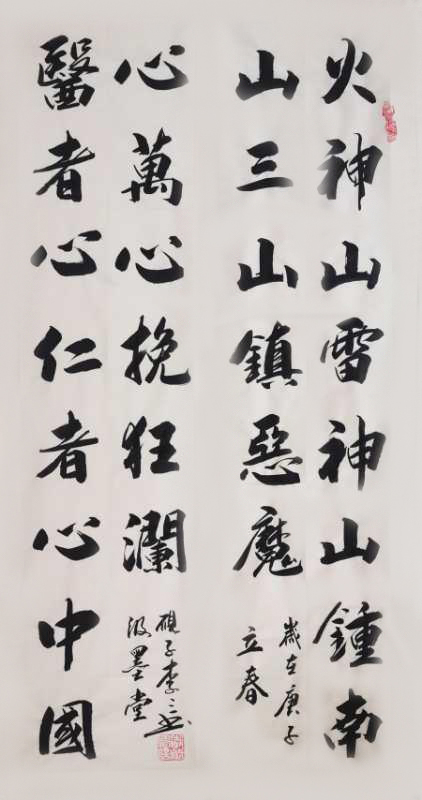 火神山雷神山鍾南
山三山鎮惡魔
歲在庚子
立春
醫者心仁者心中國
心萬心挽狂瀾
汲墨堂
硯子李